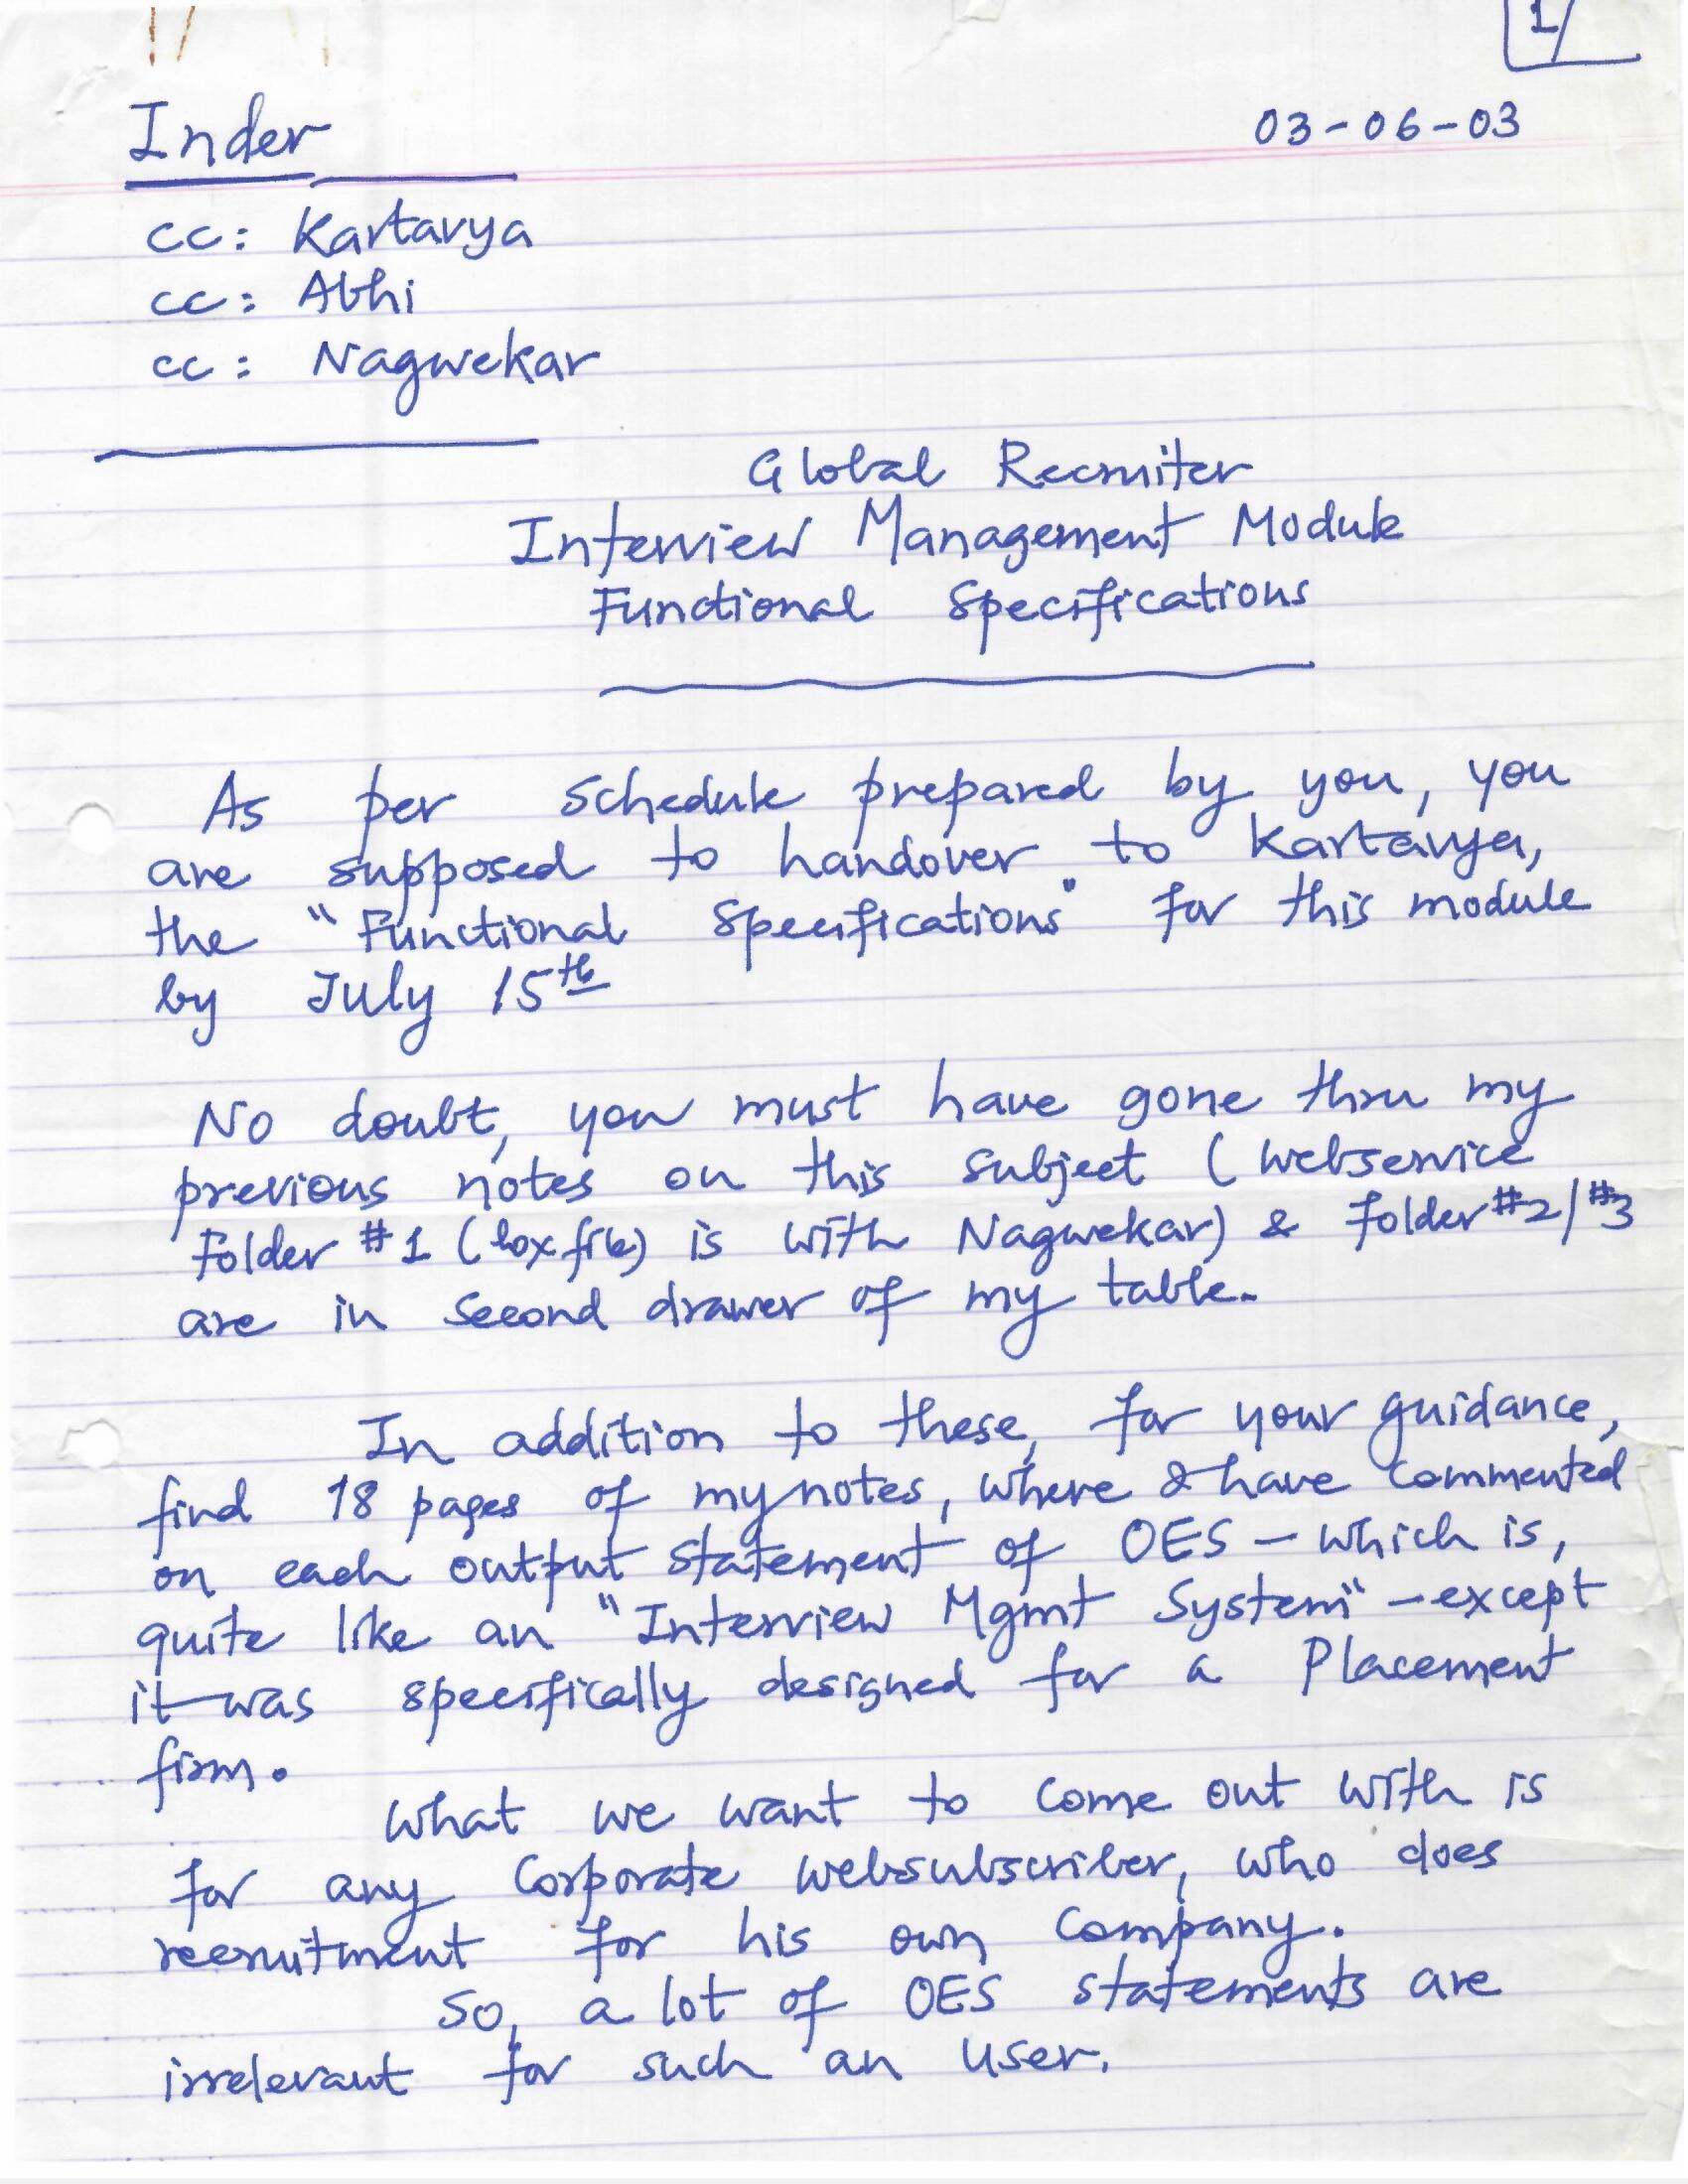 1/
Inder
03-06-03
cc: Kartavya
cc: Abhi
cc: Nagwekar
Global Recruiter
Interview Management Module
Functional Specifications
As per schedule prepared by you, you
are supposed to handover to Kartavya,
the "Functional Specifications" for this module
by July 15th
No doubt, you must have gone thru my
previous notes on this subject (webservice
Folder #1 (box file) is with Nagwekar) & Folder #2/#3
are in second drawer of my table.
In addition to these, for your guidance,
find 18 pages of my notes, where I have commented
on each output statement of OES - which is,
quite like an "Interview Mgmt System" - except
it was specifically designed for a Placement
firm.
What we want to come out with is
for any Corporate websubscriber, who does
recruitment for his own Company.
So, a lot of OES statements are
irrelevant for such an user.